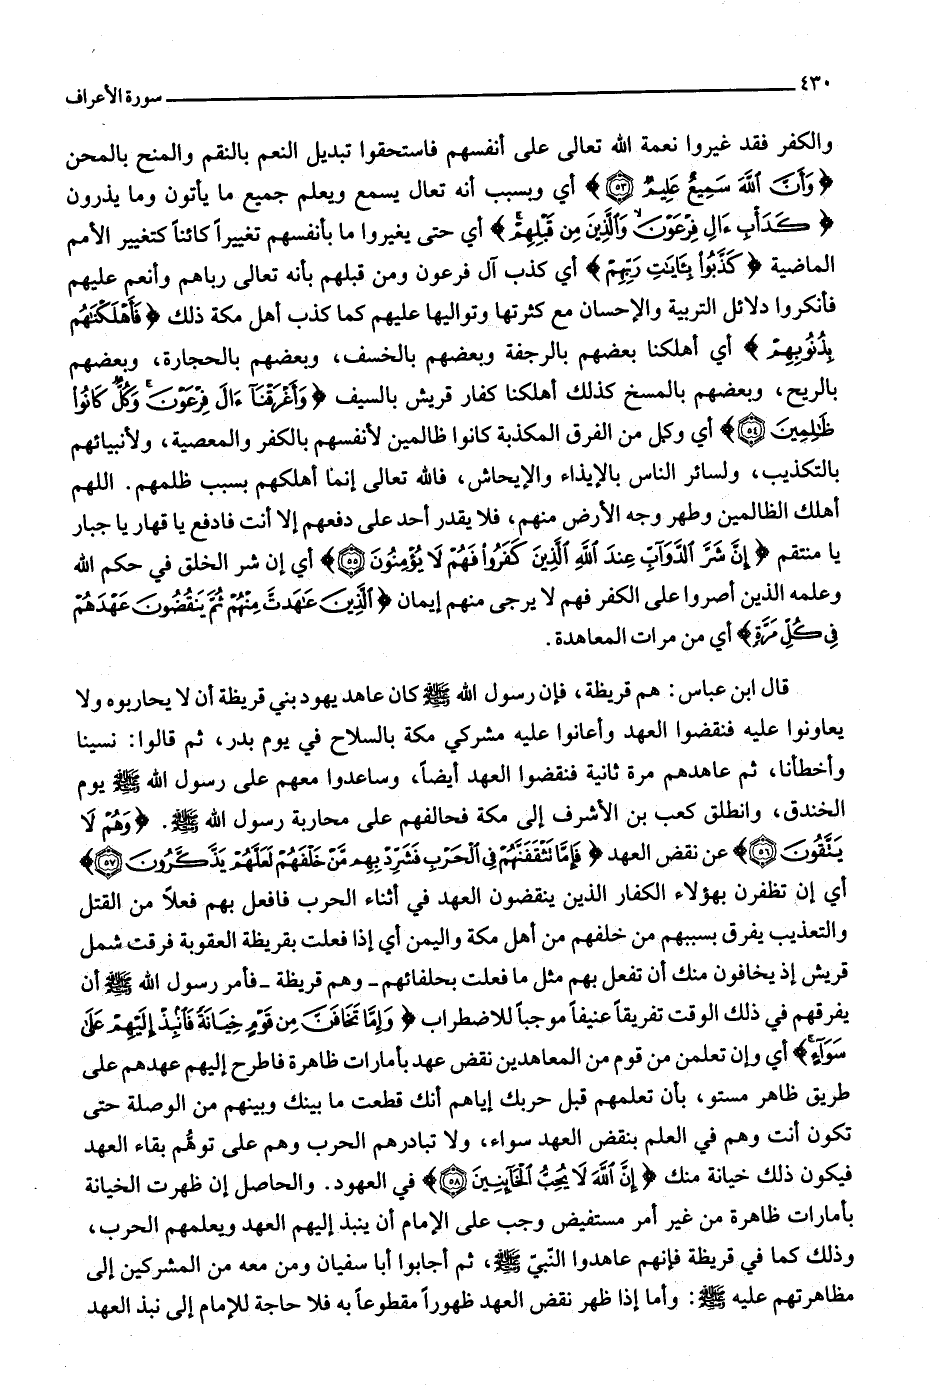 ٤٣٠ سورة الأعراف
والكفر فقد غيروا نعمة الله تعالى على أنفسهم فاستحقوا تبديل النعم بالنقم والمنح بالمحن
﴿ وَأَنَّ اللَّهَ سَمِيعٌ عَلِيمٌ ﴿٥٣﴾ ﴾ أي وبسبب أنه تعال يسمع ويعلم جميع ما يأتون وما يذرون
﴿ كَدَأْبِ ءَالِ فِرْعَوْنَ وَالَّذِينَ مِن قَبْلِهِمْ ﴾ أي حتى يغيروا ما بأنفسهم تغييراً كائناً كتغيير الأمم
الماضية ﴿ كَذَّبُوا بِـَٔايَـٰتِ رَبِّهِمْ ﴾ أي كذب آل فرعون ومن قبلهم بأنه تعالى رباهم وأنعم عليهم
فأنكروا دلائل التربية والإحسان مع كثرتها وتواليها عليهم كما كذب أهل مكة ذلك ﴿ فَأَهْلَكْنَـٰهُم
بِذُنُوبِهِمْ ﴾ أي أهلكنا بعضهم بالرجفة وبعضهم بالخسف، وبعضهم بالحجارة، وبعضهم
بالريح، وبعضهم بالمسخ كذلك أهلكنا كفار قريش بالسيف ﴿ وَأَغْرَقْنَا ءَالَ فِرْعَوْنَ وَكُلٌّ كَانُوا
ظَـٰلِمِينَ ﴿٥٤﴾ ﴾ أي وكل من الفرق المكذبة كانوا ظالمين لأنفسهم بالكفر والمعصية، ولأنبيائهم
بالتكذيب، ولسائر الناس بالإيذاء والإيحاش، فالله تعالى إنما أهلكهم بسبب ظلمهم. اللهم
أهلك الظالمين وطهر وجه الأرض منهم، فلا يقدر أحد على دفعهم إلا أنت فادفع يا قهار يا جبار
يا منتقم ﴿ إِنَّ شَرَّ الدَّوَآبِّ عِندَ اللَّهِ الَّذِينَ كَفَرُوا فَهُمْ لَا يُؤْمِنُونَ ﴿٥٥﴾ ﴾ أي إن شر الخلق في حكم الله
وعلمه الذين أصروا على الكفر فهم لا يرجى منهم إيمان ﴿ الَّذِينَ عَـٰهَدتَّ مِنْهُمْ ثُمَّ يَنقُضُونَ عَهْدَهُمْ
فِي كُلِّ مَرَّةٍ ﴾ أي من مرات المعاهدة.
قال ابن عباس: هم قريظة، فإن رسول الله ﷺ كان عاهد يهود بني قريظة أن لا يحاربوه ولا
يعاونوا عليه فنقضوا العهد وأعانوا عليه مشركي مكة بالسلاح في يوم بدر، ثم قالوا: نسينا
وأخطأنا، ثم عاهدهم مرة ثانية فنقضوا العهد أيضاً، وساعدوا معهم على رسول الله ﷺ يوم
الخندق، وانطلق كعب بن الأشرف إلى مكة فحالفهم على محاربة رسول الله ﷺ. ﴿ وَهُمْ لَا
يَتَّقُونَ ﴿٥٦﴾ ﴾ عن نقض العهد ﴿ فَإِمَّا تَثْقَفَنَّهُمْ فِي الْحَرْبِ فَشَرِّدْ بِهِم مَّنْ خَلْفَهُمْ لَعَلَّهُمْ يَذَّكَّرُونَ ﴿٥٧﴾ ﴾
أي إن تظفرن بهؤلاء الكفار الذين ينقضون العهد في أثناء الحرب فافعل بهم فعلاً من القتل
والتعذيب يفرق بسببهم من خلفهم من أهل مكة واليمن أي إذا فعلت بقريظة العقوبة فرقت شمل
قريش إذ يخافون منك أن تفعل بهم مثل ما فعلت بحلفائهم - وهم قريظة - فأمر رسول الله ﷺ أن
يفرقهم في ذلك الوقت تفريقاً عنيفاً موجباً للاضطراب ﴿ وَإِمَّا تَخَافَنَّ مِن قَوْمٍ خِيَانَةً فَانۢبِذْ إِلَيْهِمْ عَلَىٰ
سَوَآءٍ ﴾ أي وإن تعلمن من قوم من المعاهدين نقض عهد بأمارات ظاهرة فاطرح إليهم عهدهم على
طريق ظاهر مستو، بأن تعلمهم قبل حربك إياهم أنك قطعت ما بينك وبينهم من الوصلة حتى
تكون أنت وهم في العلم بنقض العهد سواء، ولا تبادرهم الحرب وهم على توهُّم بقاء العهد
فيكون ذلك خيانة منك ﴿ إِنَّ اللَّهَ لَا يُحِبُّ الْخَآئِنِينَ ﴿٥٨﴾ ﴾ في العهود. والحاصل إن ظهرت الخيانة
بأمارات ظاهرة من غير أمر مستفيض وجب على الإمام أن ينبذ إليهم العهد ويعلمهم الحرب،
وذلك كما في قريظة فإنهم عاهدوا النّبيّ ﷺ، ثم أجابوا أبا سفيان ومن معه من المشركين إلى
مظاهرتهم عليه ﷺ: وأما إذا ظهر نقض العهد ظهوراً مقطوعاً به فلا حاجة للإمام إلى نبذ العهد